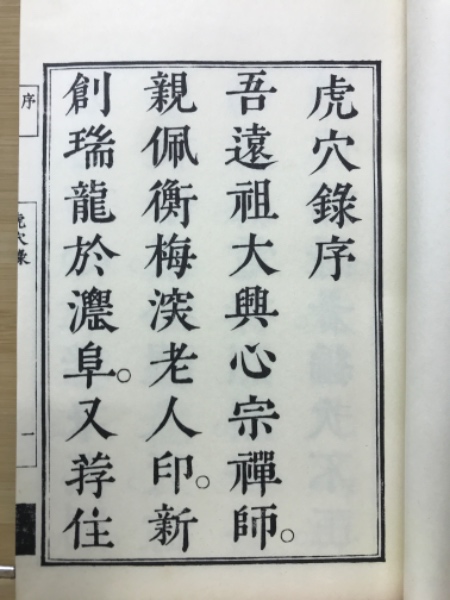 虎穴錄序
吾遠祖大興心宗禪師。
親佩衡梅㳷老人印。新
創瑞龍於灋阜。又荐住
序
虎穴錄
一